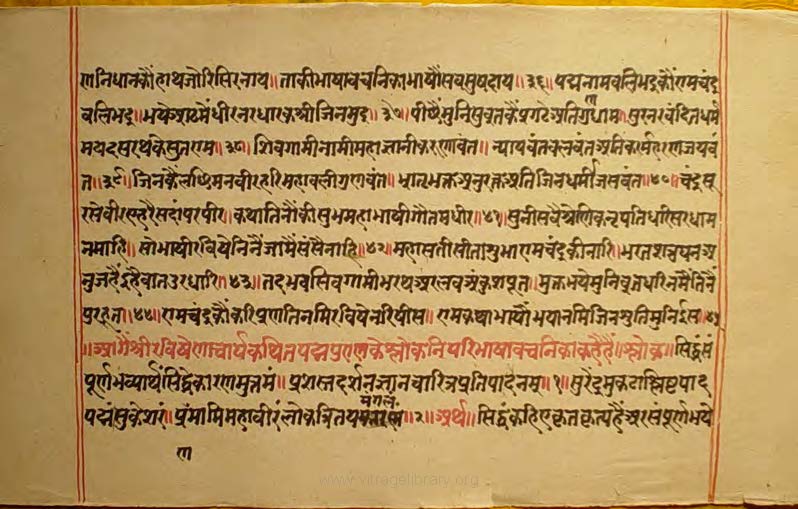 णनिधानकौंहाथजोरिसिरनाय॥ताकीभाषावचनिकाभाषौंसबसुषदाय॥३६॥पद्मनामबलिभद्रकौंरामचंद्र
बलिभद्र॥भयेआठमेंधीरनरधारकश्रीजिनमुद्र॥३७॥पीछैंमुनिसुव्रतकैंप्रगटेअतिगुणधाम॥सुरनरवंदितधर्म
मयदसरथकेसुतराम॥३८॥शिवगामीनामीमहाज्ञानीकरुणावंत॥न्यायवंतबलवंतअतिकर्महरणजयवं
त॥३९॥जिनकैलछिमनवीरहरिमहाबलीगुणवंत॥भ्रातभक्तअनुरक्तअतिजिनधर्मीजसवंत॥४०॥चंद्रसू
रसेवीरहरैसदांपरपीर॥कथातिनौंकीसुभमहाभाषीगौतमधीर॥४१॥सुनीसबैश्रेणिकनृपतिधरिसरधाम
नमाहि॥सोभाषीरविषेनिनैंजामैंसंसैनाहि॥४२॥महासतीसीताशुभारामचंद्रकीनारि॥भरतशत्रुघनअ
नुजहैंईहैबातउरधारि॥४३॥तदभवसिवगामीभरथअरलवअंकुशपूत॥मुक्तभयेमुनिव्रतधरिनमैंतिनैं
पुरहूत॥४४॥रामचंद्रकौंकरिप्रणतिनमिरविषेनरिषीस॥रामकथाभाषौंभयानमिजिनश्रुतिमुनिईस॥४५
॥आगैंश्रीरविषेणाचार्यकथितपद्मपुराणकेश्लोकनिपरिभाषावचनिकाकहैहैं॥श्लोक॥सिद्धंसं
पूर्णभव्यार्थंसिद्धेकारणमुत्तमं॥प्रशस्तदर्शनज्ञानचारित्रप्रतिपादनम्॥१॥सुरेंद्रमुकटाश्लिष्टपाद
पद्मंसुकेशरं॥प्रणमामिमहावीरंलोकत्रितयमंगलं॥२॥अर्थ॥सिद्धंकहिएकृतकृत्यहैंअरसंपूर्णभये
ण
www.vitragelibrary.org